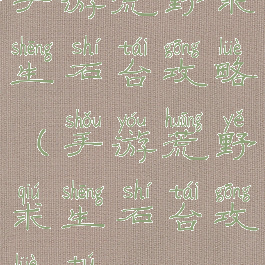 手游荒野求
shēng shí tái gōng lüè
生石台攻略
shǒu yóu huāng yě
（手游荒野
qiú shēng shí tái gōng
求生石台攻